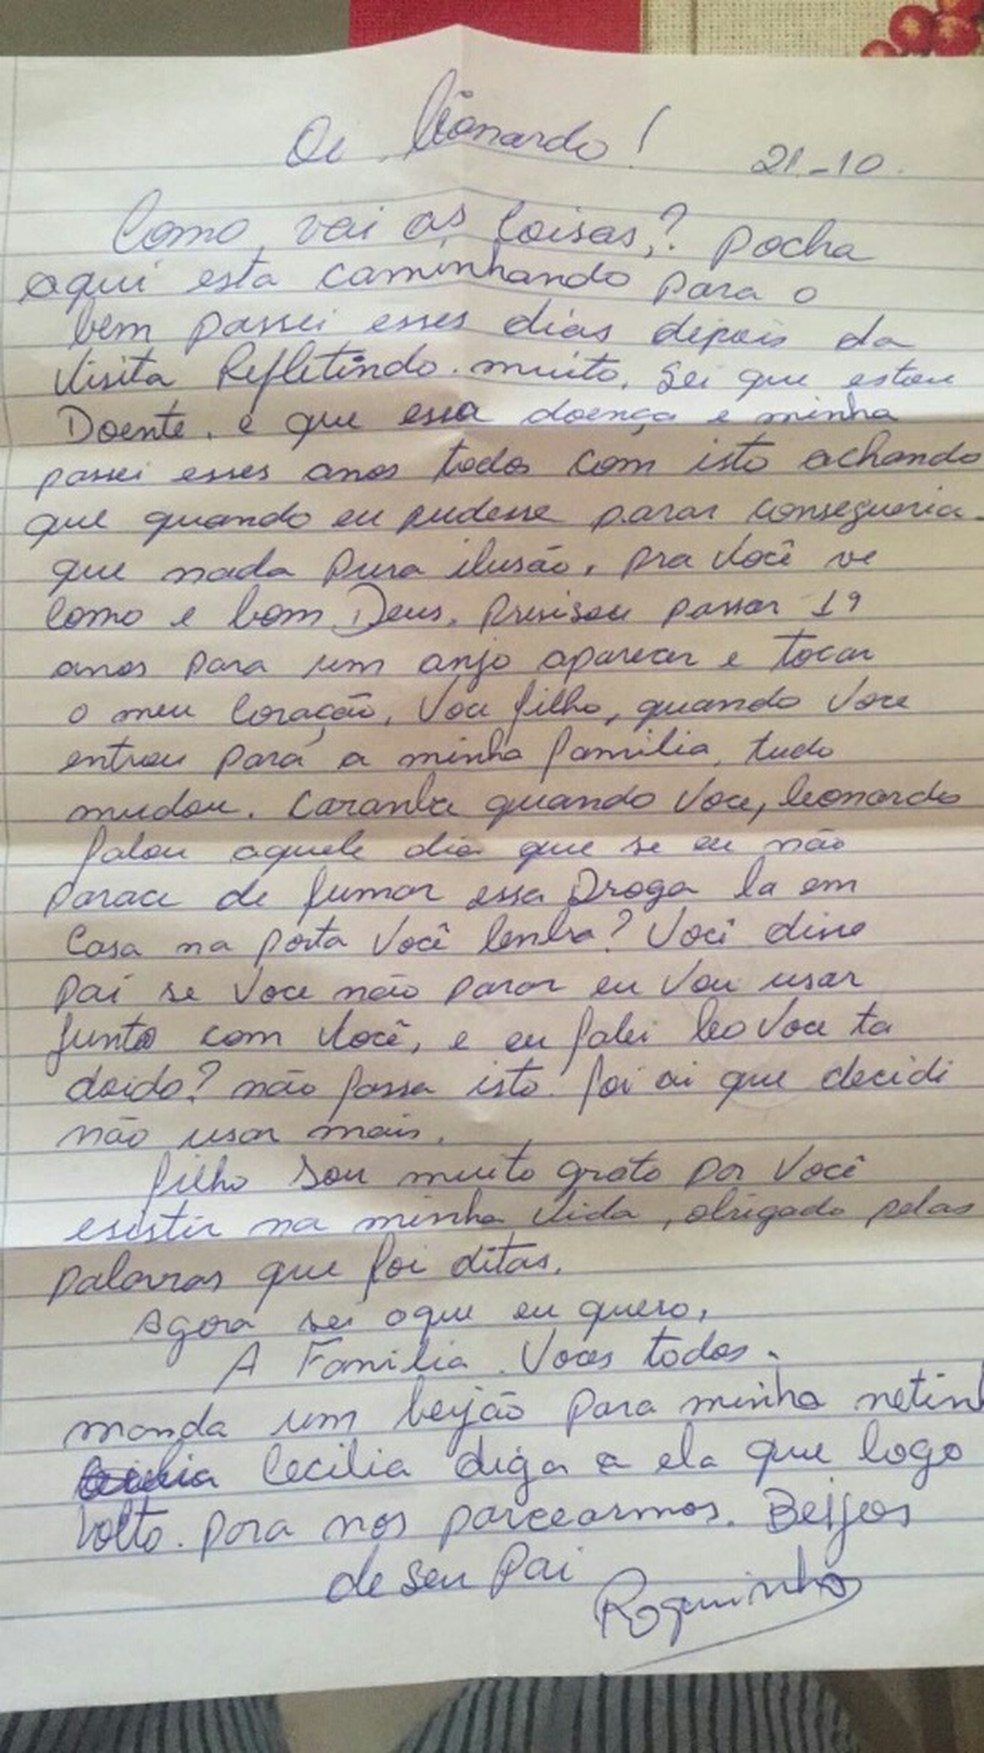 Oi Leonardo!
21-10.
Como, vai as Coisas,? pocha
aqui esta caminhando para o
bem passei esses dias depois da
Visita Refletindo. muito. Sei que estou
Doente. e que essa doença e minha
passei esses anos todos com isto achando
que quando eu pudesse parar conseguiria.
que nada pura ilusão. pra Você ve
Como e bom Deus. presisou passar 19
anos para um anjo aparecer e tocar
o meu Coração, Voce filho, quando Voce
entrou para a minha família, tudo
mudou. Caramba quando Voce, leonardo
falou aquele dia que se eu não
parace de fumar essa Droga la em
Casa na porta Você lembra? Você disse
pai se Voce não parar eu Vou usar
junto com Você, e eu falei leo Voce ta
doido? não fassa isto. foi ai que decidi
não usar mais.
filho Sou muito grato por Você
esistir na minha Vida, obrigado pelas
palavras que foi ditas.
Agora sei oque eu quero,
A Família. Voces todos.
manda um beijão para minha netinh
Cecilia diga a ela que logo
Volto. para nos passearmos. Beijos
de seu Pai
Roquinho